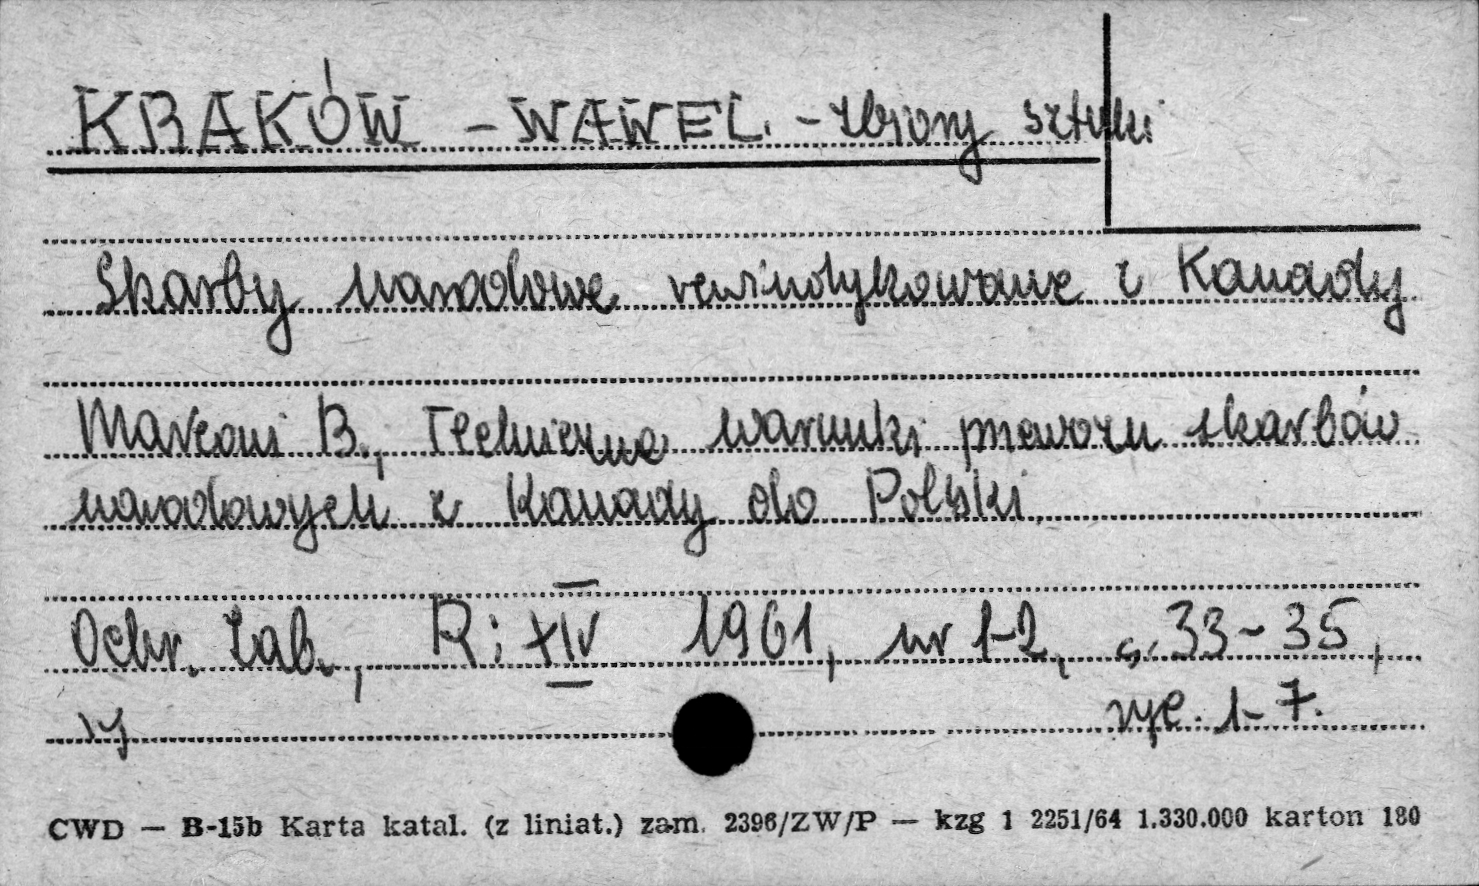 KRAKÓW - WAWEL. - zbiory sztuki
Skarby narodowe rewindykowane z Kanady
Marconi B., Techniczne warunki przewozu skarbów
narodowych z Kanady do Polski.
Ochr. Zab., R: XIV 1961, nr 1-2, s. 33-35,
ryc. 1-7.
CWD — B-15b Karta katal. (z liniat.) zam. 2396/ZW/P — kzg 1 2251/64 1.330.000 karton 180